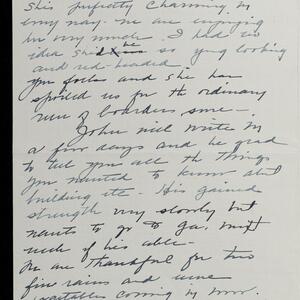 She's perfectly charming in
every way. We are enjoying
her very much. I had no
idea she'd be so yng looking
and red-headed.
You folks and she has
spoiled us for the ordinary
run of boarders sure—
John will write in
a few days and be glad
to tell you all the things
you wanted to know abt
building etc— His gained
strength very slowly but
wants to go to Ga. next
week if his able—
We are thankful for two
fine rains and
vegetables coming in now.